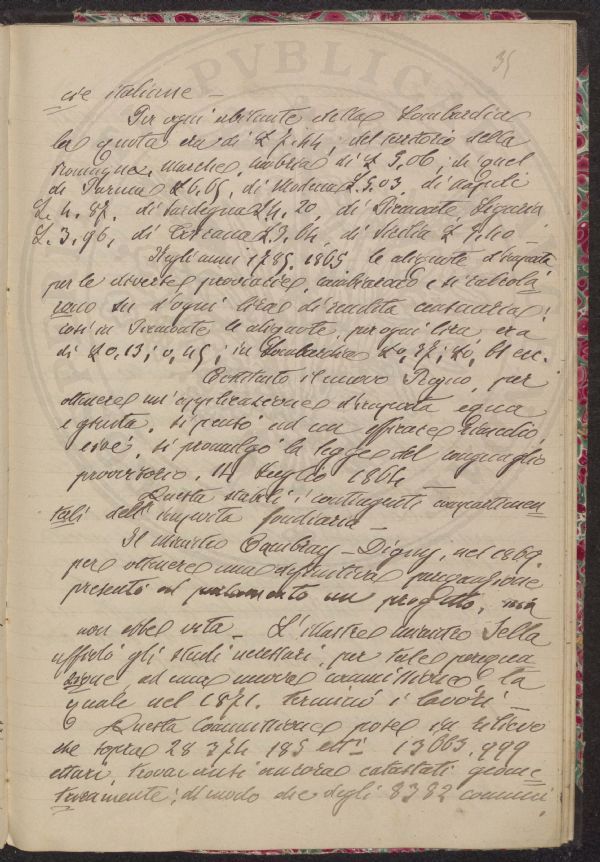 35
cie italiane —
Per ogni abitante della Lombardia
la quota era di £ 7,44; del territorio della
Romagna, Marche, Umbria di £ 5,06; di quel
di Parma £ 6,65, di Modena £. 5.03, di Napoli
£. 4. 87. di Sardegna £ 4. 20, di Piemonte, Liguria
£. 3,96, di Toscana £ 3,64, di Sicilia £ 3,40 —
Negli anni 1785. 1865 le aliquote d'imposta
per le diverse provincie, cambiarono e si calcola
rono su d'ogni lira di rendita censuaria;
così in Piemonte le aliquote per ogni lira era
di £ 0,13; 0,45; in Lombardia £ 0,37; £ 0,61 ecc.
Costituito il nuovo Regno, per
ottenere un'applicazione d'imposta equa
e giusta, si pensò ad un efficace rimedio,
cioè, si promulgò la legge del conguaglio
provvisorio, 14 Luglio 1864
Questa stabilì i contingenti compartimen
tali dell'imposta fondiaria —
Il ministro Cambray-Digny, nel 1869.
per ottenere una definitiva perequazione
presentò al parlamento un progetto,
non ebbe vita — L'illustre ministro Sella
affidò gli studi necessari, per tale perequa
zione ad una nuova commissione la
quale nel 1871. terminò i lavori —
Questa Commissione pose in rilievo
che sopra 28 374 185 ett.i 13 663.999
ettari, trovavansi ancora catastati geome
tricamente; di modo che degli 8382 comuni